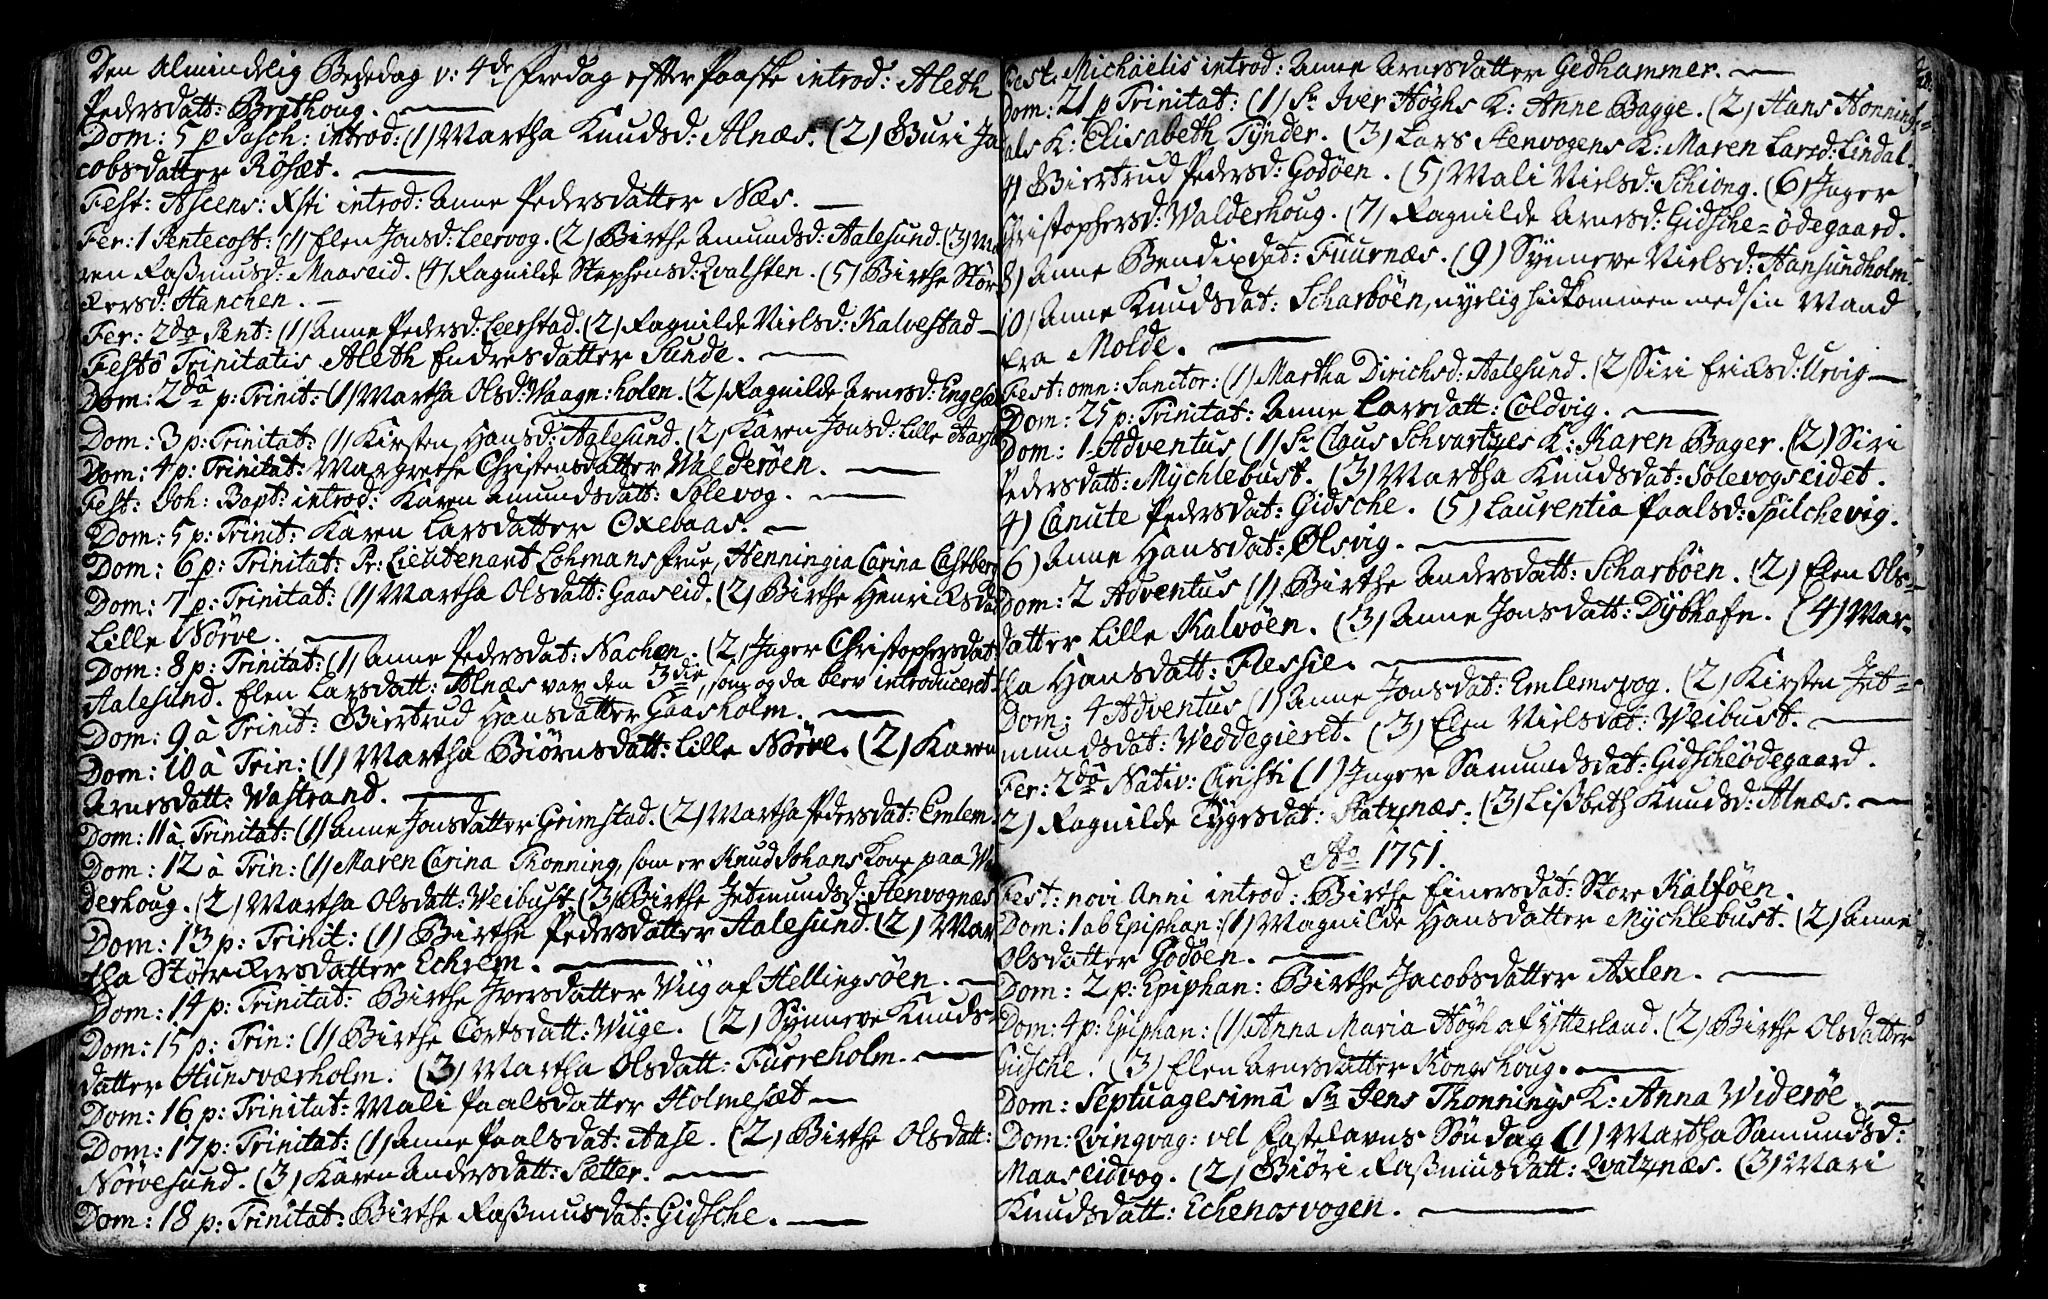 Den Almindelig Bededag v: 4de Fredag efter Paaske introd: Aleth
Pedersdatt: Brethoug.
Dom: 5 p Pasch: introd: (1) Martha Knudsd: Alnæs. (2) Guri Ja
cobsdatter Rösæt.
Fest: Ascens: Xsti introd: Anne Pedersdatter Næs.
Fer: 1 Pentecost: (1) Elen Jonsd: Leervog. (2) Birthe Amundsd: Aalesund. (3) Ma
ren Rasmusd: Maaseid. (4) Ragnilde Stephensd: Qvalsten. (5) Birthe Stör
kersd: Hanchen.
Fer: 2da Pent: (1) Anne Pedersd: Leerstad. (2) Ragnilde Nielsd: Kalvestad
Festô Trinitatis Aleth Endresdatter Sunde.
Dom: 2dâ p: Trinit: (1) Martha Olsd: Vaagn: holen. (2) Ragnilde Arnesd: Engesæt
Dom: 3 p: Trinitat: (1) Kirsten Hansd: Aalesund. (2) Karen Jonsd: Lille
Dom: 4 p: Trinitat: Margrethe Christensdatter Walderöen.
Fest: Joh: Bapt: introd: Karen Amundsdatt: Solevog.
Dom: 5 p: Trinit: Karen Larsdatter Oxebaas.
Dom: 6 p: Trinitat: Pr: Lieutenant Lohmans frue, Henningia Carina Castberg
Dom: 7 p: Trinitat: (1) Martha Olsdatt: Gaaseid. (2) Birthe Henricksdat
Lille Nörve.
Dom: 8 p: Trinitat: (1) Anne Pedersdat: Nachen. (2) Inger Christophersdat:
Aalesund. Elen Larsdatt: Alnæs var den 3die, som og da blev introduceret
Dom: 9 à Trinit: Giertrud Hansdatter Gaasholm.
Dom: 10 à Trin: (1) Martha Biörnsdatt: Lille Nörve. (2) Karen
Arnesdatt: Wastrand.
Dom: 11 à Trinitat: (1) Anne Jonsdatter Grimstad. (2) Martha Pedersdat: Emlem
Dom: 12 à Trin: (1) Maren Carina Thonning, som er Knud Johans Kone paa Wal
derhoug. (2) Martha Olsdatt: Weibust (3) Birthe Jetmundsd: Stenvognæs
Dom: 13 p: Trinit: (1) Birthe Pedersdatter Aalesund. (2) Mar
tha Störckersdatter Echrem.
Dom: 14 p: Trinitat: Birthe Iversdatter Wiig af Hellingsöen.
Dom: 15 p: Trin: (1) Birthe Cortsdatt: Wiige. (2) Synneve Knuds
datter Hunsværholm. (3) Martha Olsdatt: Furreholm.
Dom: 16 p: Trinitat: Mali Paalsdatter Holmesæt
Dom: 17 p: Trinitat: (1) Anne Paalsdat: Aase. (2) Birthe Olsdatt:
Nörvesund. (3) Karen Andersdatt: Sætter.
Dom: 18 p: Trinitat: Birthe Rasmusdat: Gidsche.
Fest: Michaelis introd: Anne Arnesdatter Gedhammer.
Dom: 21 p Trinitat: (1) Sr Iver Höghs K: Anne Bagge. (2) Hans Honnings
als K: Elisabeth Tynder. (3) Lars Stenvogens K: Maren Larsd: Lindal.
4) Giertrud Pedersd: Godöen. (5) Mali Nielsd: Schiong. (6) Inger
Christophersd: Walderhoug. (7) Ragnilde Arnesd: Gidsche=ödegaard.
8) Anne Bendixdat: Fuurnæs. (9) Synneve Nielsd: Hansundholm
10) Anne Knudsdat: Scharböen, nylig hidkommen med sin Mand
fra Molde.
Fest: omn: Sanctor: (1) Martha Dirichsd: Aalesund. (2) Siri Eriksd: Urvig
Dom: 25 p: Trinitat: Anne Larsdatt: Coldvig.
Dom: 1 Adventus (1) Sr Claus Schvartzes K: Karen Bager. (2) Siri
Pedersdatt: Mychlebust. (3) Martha Knudsdat: Solevogseidet.
4) Canute Pedersdat: Gidsche. (5) Laurentia Paalsd: Spilchevig.
6) Anne Hansdat: Ölsvig.
Dom: 2 Adventus (1) Birthe Andersdatt: Scharböen. (2) Elen Ols=
datter Lille Kalvöen. (3) Anne Jonsdatt: Dybhafn. (4) Mar=
tha Hansdatt: Flessie.
Dom: 4 Adventus (1) Anne Jonsdat: Emlemsvog. (2) Kirsten Jet=
mundsdat: Weddegieret. (3) Elen Nielsdat: Weibust.
Fer: 2dâ Nativ: Christi (1) Inger Samundsdat: Gidscheödegaard.
2) Ragnilde Tygesdat: Statznæs. (3) Lisbeth Knudsd: Alnæs.
Ao 1751.
Fest: novi Anni introd: Birthe Einersdat: Store Kalföen.
Dom: 1 ab Epiphan: (1) Magnilde Hansdatter Mychlebust. (2) Anne
Olsdatter Godöen.
Dom: 2 p: Epiphan: Birthe Jacobsdatter Axlen.
Dom: 4 p: Epiphan: (1) Anna Maria Högh af Ytterland. (2) Birthe Olsdatter
Gidsche. (3) Elen Arnesdatter Kongshoug.
Dom: Septuagesimâ Sr Jens Thonnings K: Anna Wideröe.
Dom: Qvingvag: vel Fastelavns Söndag (1) Martha Samundsd:
Maaseidvog. (2) Giöri Rasmusdatt: Qvatznæs. (3) Mari
Knudsdatt: Echenosvogen.